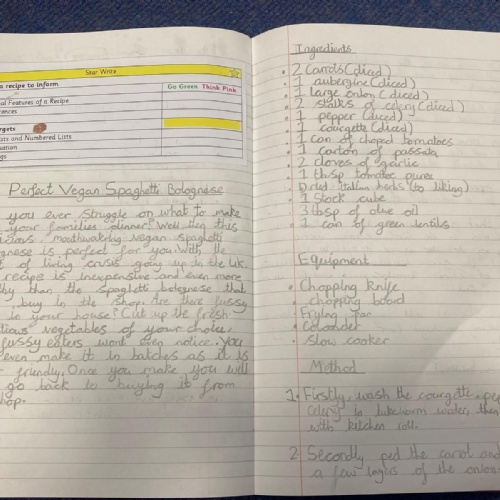 Star Write
a recipe to inform
Go Green Think Pink
al Features of a Recipe
ences
rgets
ats and Numbered Lists
uation
gs
Perfect Vegan Spaghetti Bolognese
you ever struggle on what to make
your families dinner? Well then this
icious mouthwatering vegan spaghetti
gnese is perfect for you. With the
t of living crisis going up in the UK,
recipe is inexpensive and even more
thy than the spagetti bolognese that
buy in the shop. Are there fussy
in your house? Cut up the fresh
tious vegetables of your choice,
fussy eaters wont even notice. You
even make it in batches as it is
friendly. Once you make you will
go back to buying it from
shop.
Ingredients
• 2 Carrots (diced)
• 1 aubergine (diced)
• 1 large onion (diced)
• 2 stalks of celery (diced)
• 1 pepper (diced)
• 1 courgette (diced)
• 1 can of choped tomatoes
• 1 carton of passata
• 2 cloves of garlic
• 1 tbsp tomatoe puree
• Dried italian herbs (to liking)
• 1 Stock cube
• 3 tbsp of olive oil
• 1 can of green lentils
Equipment
• Chopping knife
• chopping board
• Frying pan
• Colander
• Slow cooker
Method
1. Firstly, wash the courgette, pep
celery in lukewarm water, then
with kitchen roll.
2. Secondly peel the carrot and
a few layers of the onion